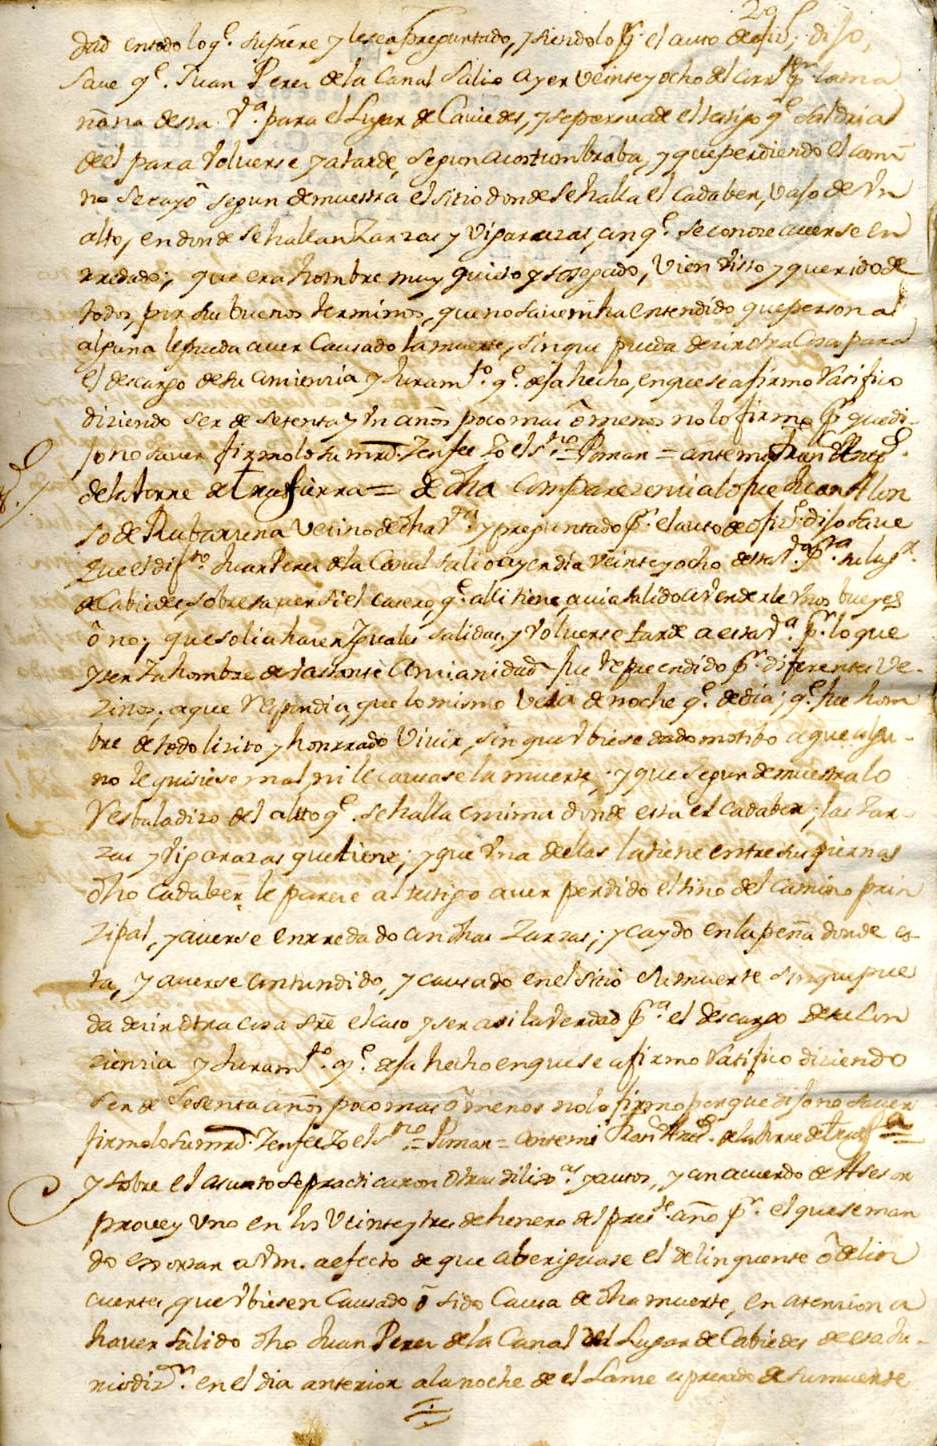 29
dad en todo lo q.e supiere y le sea preguntado, y siendolo p.r el auto de ofiz.o; dijo,
save q.e Juan Perez de la Canal salio ayer veinte y ocho del corr.te p.r la ma
ñana desta V.a para el Lugar de Caviedes, y se persuade el testigo q.e saldria
de el para volverse ya tarde, segun acostumbraba, y que perdiendo el cami
no se cayo segun demuestra el sitio donde se halla el cadaber, vajo de un
alto, en donde se hallan zarzas y vigarazas, con q.e se conoze averse en
rredado; que era hombre muy quieto y sosegado, vien visto y querido de
todos, por sus buenos terminos, que no save ni ha entendido que persona
alguna le pueda aver causado la muerte, sin que pueda dezir otra cosa para
el descargo de su conzienzia y juram.to q.e deja hecho, en que se afirmo ratifico
diziendo ser de setenta y un años poco mas o menos no lo firmo p.r que di-
jo no saver firmolo su mrd. Zenfee Zoel S.rio = Roman = ante mi Fran.co Ant.o
de la torre de trasierra = de dha comparezenzia lo fue Juan Alon
so de Rubarzena vecino de dha V.a y preguntado p.r el auto de ofiz.o dijo save
que el dif.to Juan Perez de la Canal salio ayer dia veinte y ocho desta V.a p.ra su lug.r
de Cabiedes, sobre saver si el casero q.e alli tiene, avia salido a venderle unos bueyes
o no; que solia hazer yguales salidas, y volverse tarde a esta V.a p.r lo que
y ser ya hombre de bastante anzianidad fue reprendido p.r diferentes ve-
zinos, a que respondia, que lo mismo veia de noche q.e de dia; q.e fue hom
bre de todo lizito y honrrado vivir, sin que ubiese dado motibo a que algu-
no le quisiese mal ni le causase la muerte; y que segun demuestra lo
resbaladizo del alto q.e se halla enzima donde esta el cadaber; las zar-
zas y vigarazas que tiene; y que una de ellas la tiene entre sus piernas
dho cadaber, le pareze al testigo aver perdido el tino del camino prin
zipal, y averse enrredado con dhas zarzas; y caydo en la peña donde es
ta, y averse contundido, y causado en el sitio su muerte sin que pue
da dezir otra cosa sre el caso y ser asi la verdad p.a el descargo de su con
zienzia y juram.to q.e deja hecho en que se afirmo ratifico diziendo
ser de sesenta años poco mas o menos no lo firmo porque dijo no saver
firmolo su mrd. Zenfee Zoel S.rio = Roman = ante mi Fran.co Ant.o de la torre de tras.ra =
y sobre el asunto se practicaron otras diliz.as y autos, y con acuerdo de Asesor
provey uno en los veinte y tres de henero del pres.te año p.r el que se man
do exortar a Vm. a efecto de que aberiguase el delinquente o delin
cuentes, que ubiesen causado o sido causa de dha muerte, en atenzion a
haver salido dho Juan Perez de la Canal del Lugar de Cabiedes de esa Ju-
risdiz.n en el dia anterior a la noche de el lanze espresado de su muerte